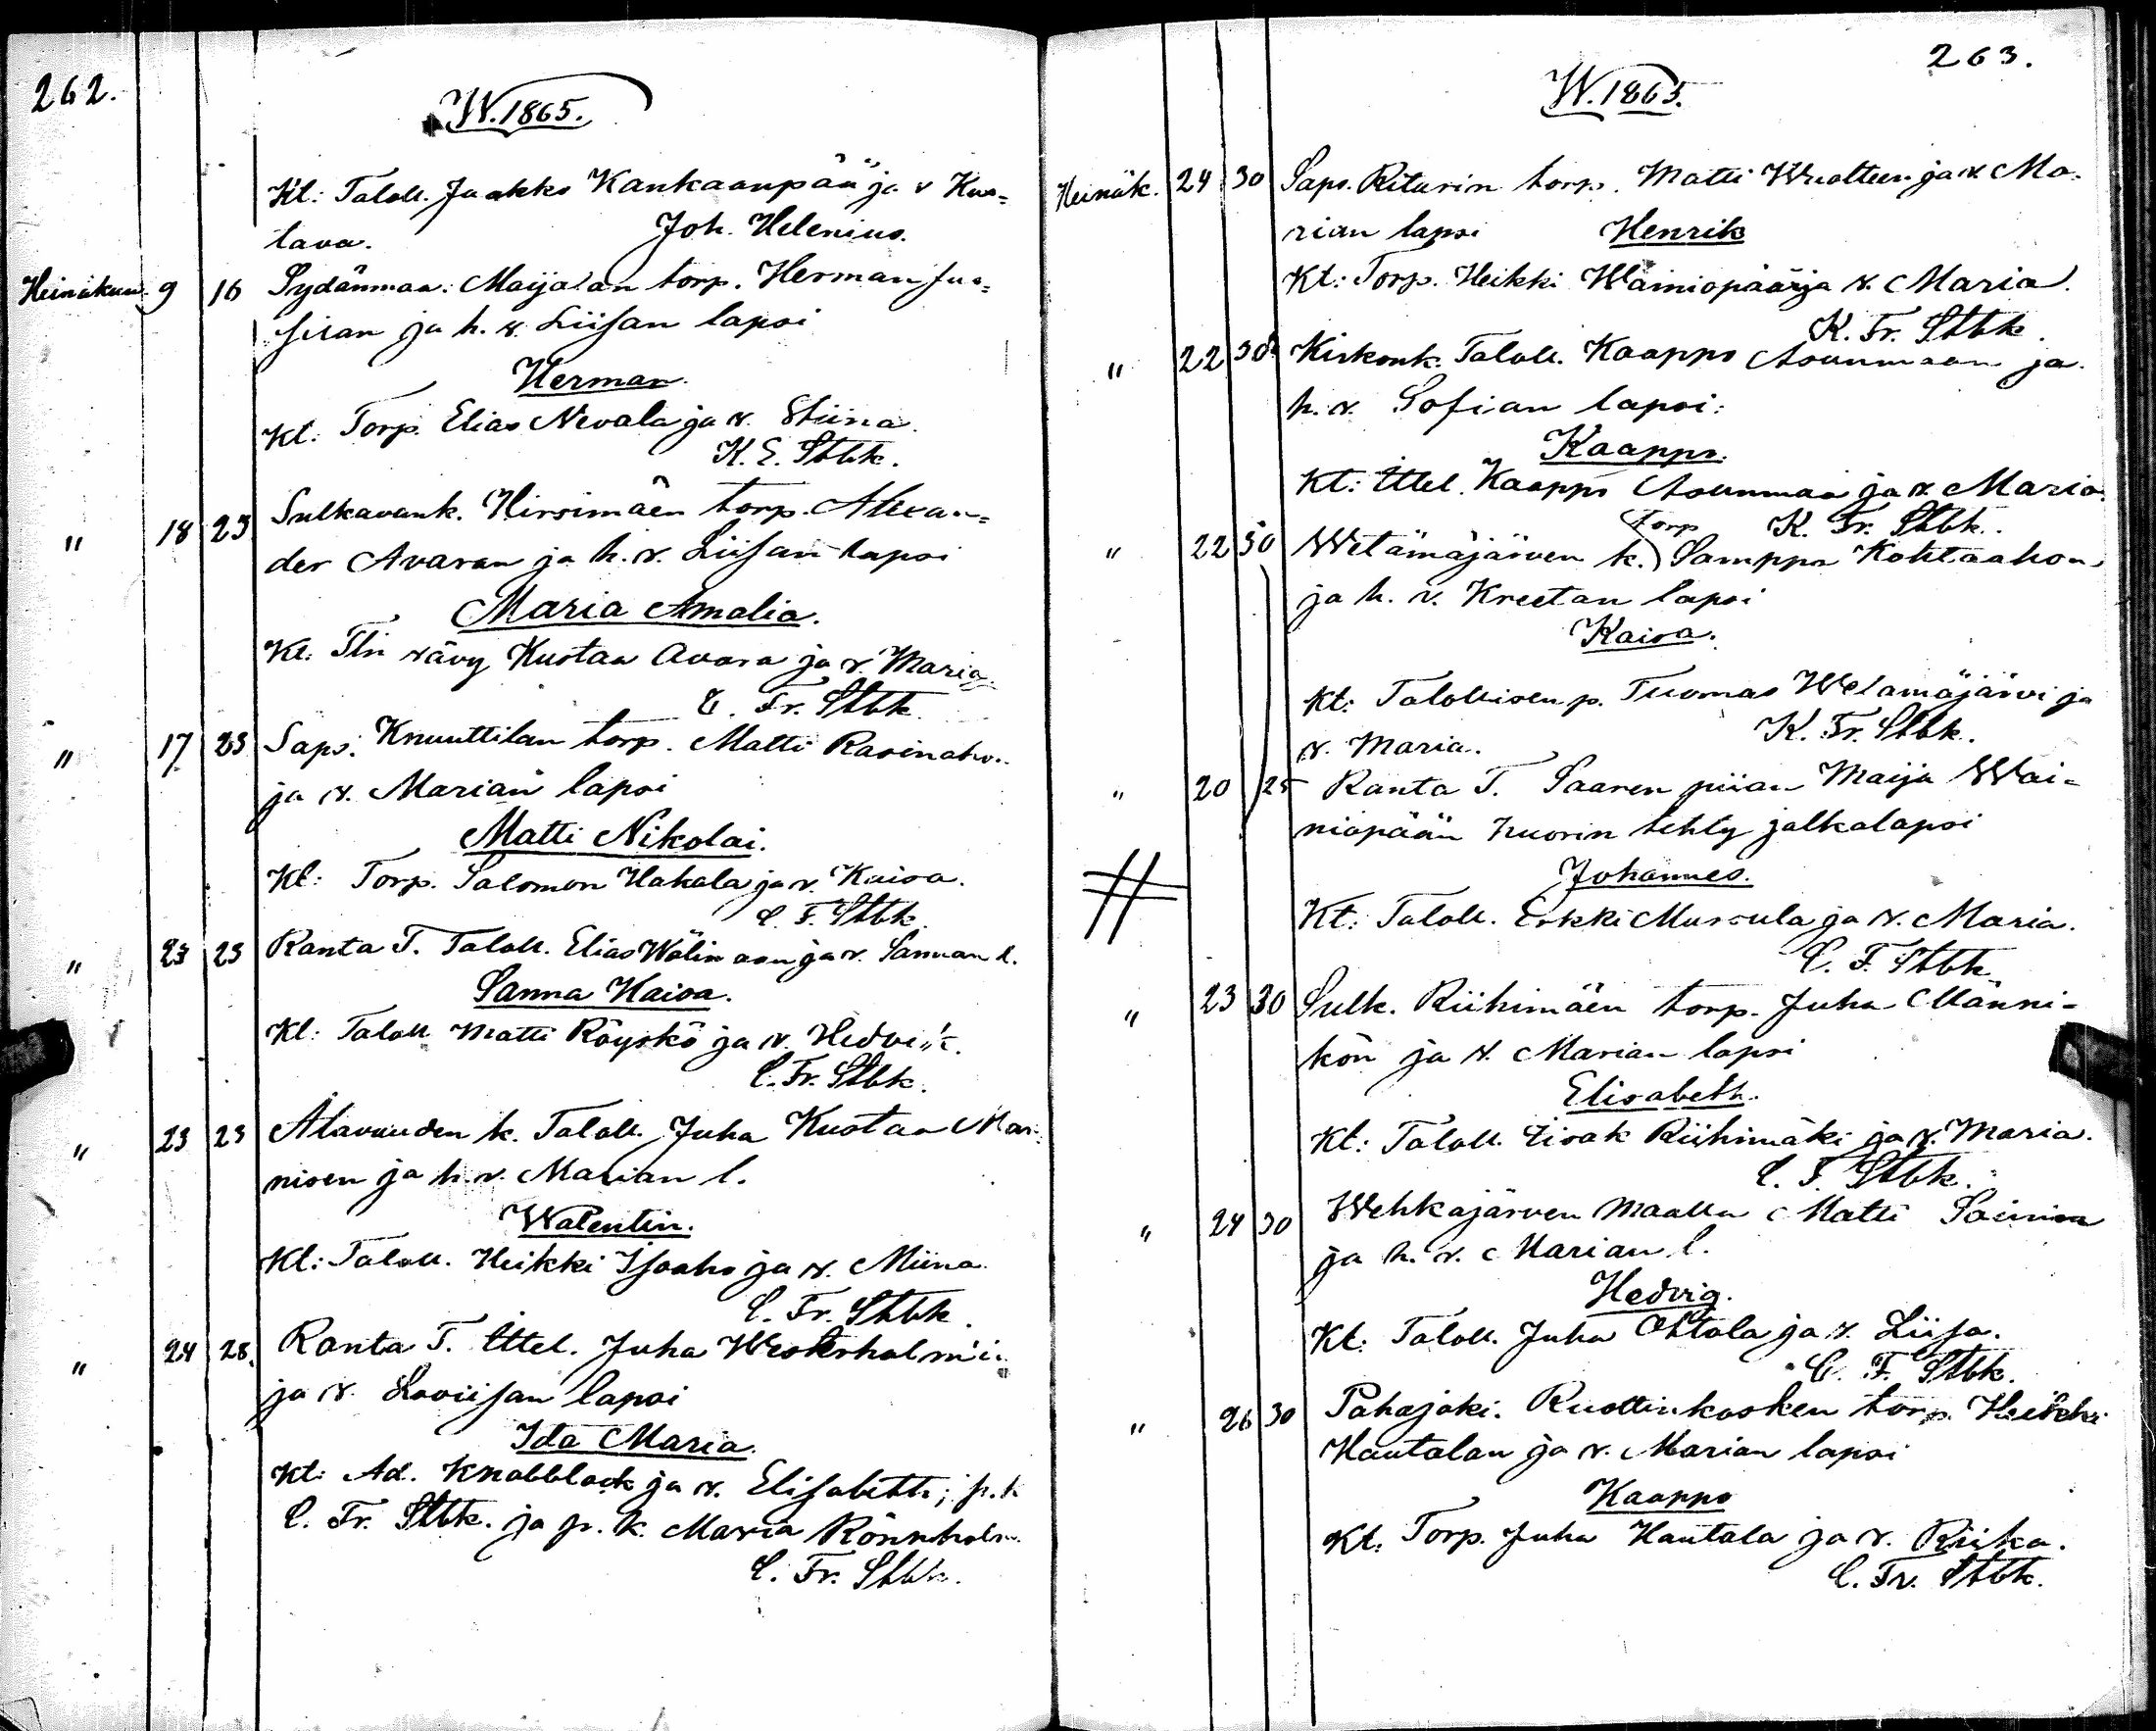 262.
W. 1865.
Kt: Taloll. Jaakko Kankaanpää ja v Kus=
tava. Joh. Helenius.
Heinäkuu. 9 16 Sydänmaa: Maijalan torp. Herman
ja h. v. Liisan lapsi
Herman.
Kt: Torp. Elias Nevala ja v. Stiina.
K. E. Stbk.
" 18 23 Sulkavank. Hirsimäen torp. Alexan=
der Avaran ja h. v. Liisan lapsi
Maria Amalia.
Kt: Tln vävy Kustaa Avara ja v. Maria.
C. Fr. Stbk.
" 17 23 Saps. Knuuttilan torp. Matti Rasinaho
ja v. Marian lapsi
Matti Nikolai.
Kt: Torp. Salomon Hakala ja v. Kaisa.
C. F. Stbk.
" 23 23 Ranta T. Taloll. Elias Wälimaan ja v. Sannan l.
Sanna Kaisa.
Kt: Taloll. Matti Röyskö ja v. Hedvik.
C. Fr. Stbk.
" 23 23 Alavuuden k. Taloll. Juha Kustaa Man=
nisen ja h. v. Marian l.
Walentin.
Kt: Taloll. Heikki Isoaho ja v. Miina.
C. Fr. Stbk.
" 24 28. Ranta T. Ittel. Juha Westerholmin
ja v. Loviisan lapsi
Ida Maria.
Kt: Ad. Knabblock ja v. Elisabeth; p. k
C. Fr. Stbk. ja p. k. Maria Rönnholm.
C. Fr. Stbk.
263.
W. 1865.
Heinäk. 24 30 Saps. Riturin torp. Matti Wuolteen ja v. Ma=
rian lapsi Henrik
Kt: Torp. Heikki Wainiopää ja v. Maria.
K. Fr. Stbk.
" 22 30 Kirkonk. Taloll. Kaappo Asunmaan ja
h. v. Sofian lapsi:
Kaappo.
Kt: Ittel. Kaappo Asunmaa ja v. Maria.
K. Fr. Stbk.
" 22 30 Wetämäjärven k. Torp Samppa Kohtaahon
ja h. v. Kreetan lapsi
Kaisa.
Kt: Talollisen p. Tuomas Wetämäjärvi ja
v. Maria. K. Fr. Stbk.
" 20 25 Ranta T. Saaren piian Maija Wai=
niopään huorin tehty jalkalapsi
Johannes.
Kt: Taloll. Erkki Mursula ja v. Maria.
C. F. Stbk.
" 23 30 Sulk. Riihimäen torp. Juha Männi=
kön ja v. Marian lapsi
Elisabeth.
Kt: Taloll. Iisak Riihimäki ja v. Maria.
C. F. Stbk.
" 24 30 Wehkajärven maalla Matti
ja h. v. Marian l.
Hedvig.
Kt: Taloll. Juha Ohtola ja v. Liisa.
C. F. Stbk.
" 26 30 Pahajoki. Ruottinkosken torp. Heikki
Hautalan ja v. Marian lapsi
Kaappo
Kt: Torp. Juha Hautala ja v. Riika.
C. Fr. Stbk.